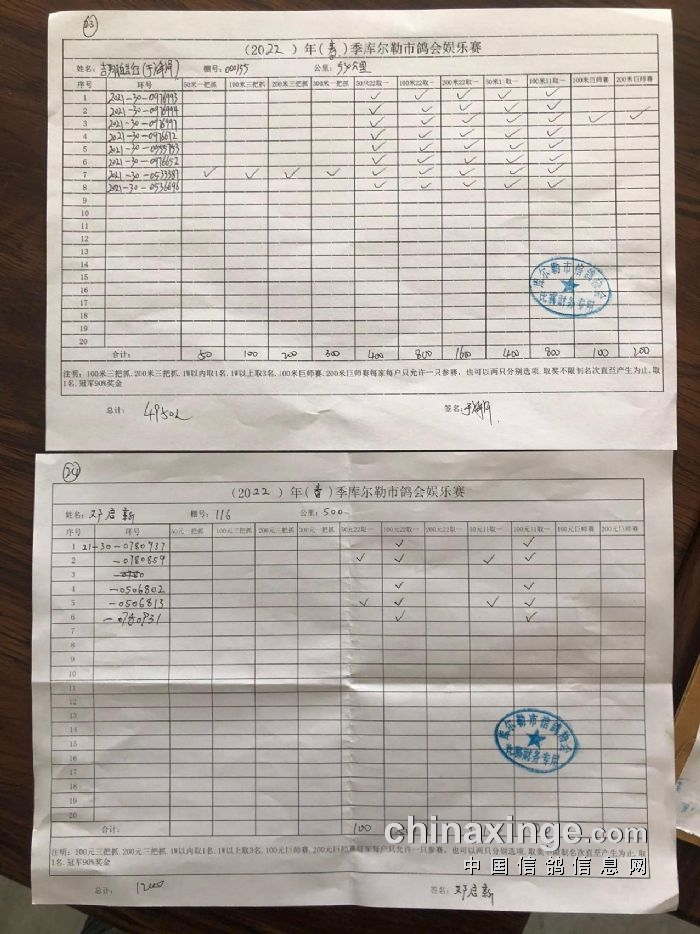 23
(2022)年(春)季库尔勒市鸽会娱乐赛
姓名: 棚号: 000155 公里:
序号 环号 50米一把抓 100米三把抓 200米三把抓 300米一把抓 50元22取一 100元22取一 200米22取一 50米11取一 100米11取一 100米巨师赛 200米巨师赛
1 2021-30-0976993 ✓ ✓ ✓ ✓ ✓
2 2021-30-0976994 ✓ ✓ ✓ ✓ ✓
3 2021-30-0976997 ✓ ✓ ✓ ✓ ✓ ✓ ✓
4 2021-30-0976672 ✓ ✓ ✓ ✓ ✓
5 2021-30-0555753 ✓ ✓ ✓ ✓ ✓
6 2021-30-0976652 ✓ ✓ ✓ ✓ ✓
7 2021-30-0533387 ✓ ✓ ✓ ✓ ✓ ✓ ✓ ✓ ✓
8 2021-30-0536696 ✓ ✓ ✓ ✓ ✓
9
10
11
12
13
14
15
16
17
18
19
20
合计: 50 100 200 300 400 800 1600 400 800 100 200
库尔勒市信鸽协会
比赛财务专用
注明: 100米三把抓.200米三把抓.1W以内取1名.1W以上取3名.100米巨师赛.200米巨师赛每家每户只允许一只参赛，也可以两只分别选项.取奖不限制名次直至产生为止.取
1名.冠军90%奖金
总计: 签名:
24
(2022)年(春)季库尔勒市鸽会娱乐赛
姓名: 邓启新 棚号: 116 公里: 500
序号 环号 50元一把抓 100元三把抓 200元三把抓 200元一把抓 50元22取一 100元22取一 200元22取一 50元11取一 100元11取一 100元巨师赛 200元巨师赛
1 21-30-0780937 ✓ ✓
2 -0780859 ✓ ✓ ✓ ✓
3 -0780
4 -0506802 ✓ ✓
5 -0506813 ✓ ✓ ✓ ✓
6 -0780931 ✓ ✓
7
8
9
10
11
12
13
14
15
16
17
18
19
20
合计: 100
库尔勒市信鸽协会
比赛财务专用
chinaxinge.com
中国信鸽信息网
注明: 100元三把抓.200元三把抓.1W以内取1名.1W以上取3名.100元巨师赛.200元巨师赛每家每户只允许一只参赛，也可以两只分别选项.取奖不限制名次直至产生为止.取
1名.冠军90%奖金
总计: 签名: 邓启新